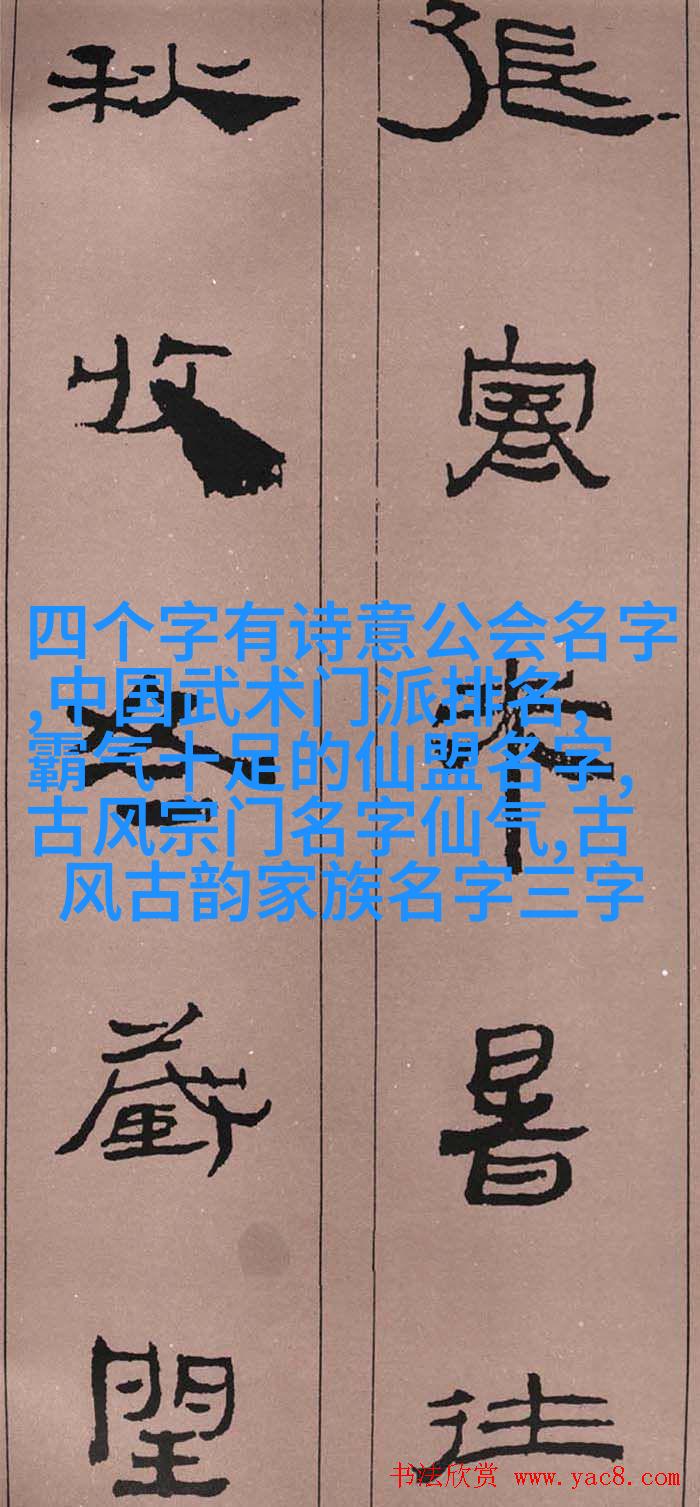 張寒來暑往
秋收冬藏閏
四个字有诗意公会名字
,中国武术门派排名,
霸气十足的仙盟名字,
古风宗门名字仙气,古
风古韵家族名字三字
书法欣赏 www.yac8.com